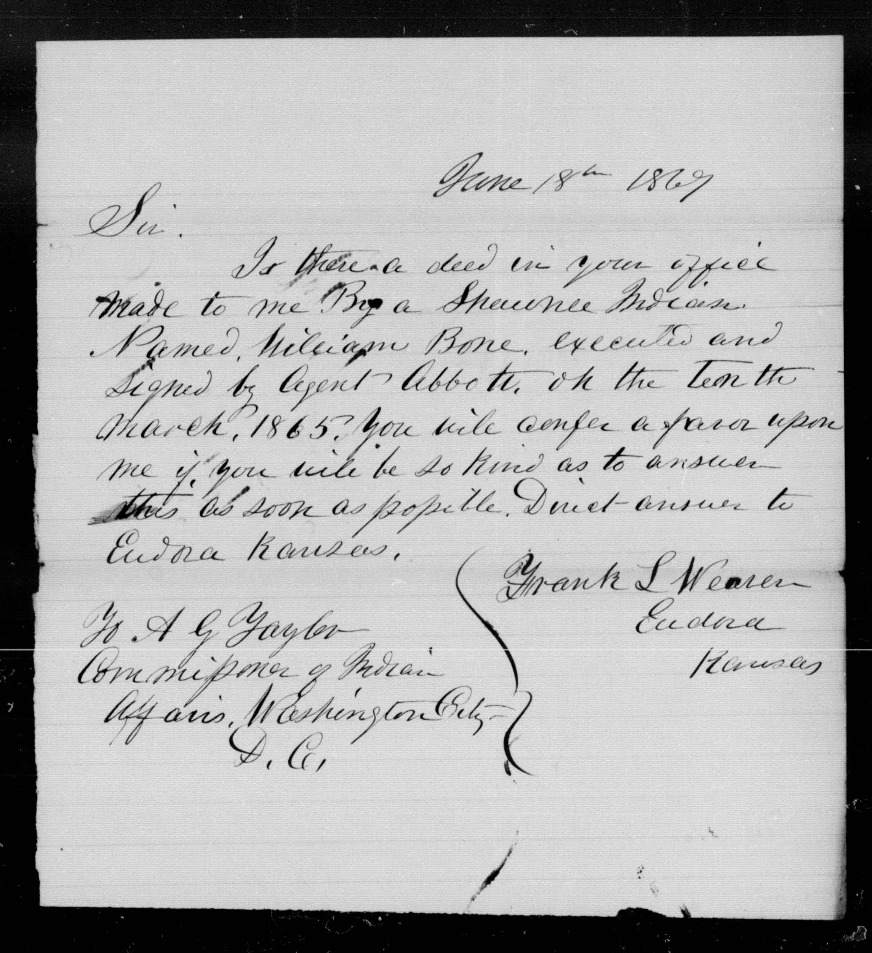 June 18th 1867
Sir.
Is there a deed in your office
made to me By a Shawnee Indian
Named, William Bone. executed and
signed by Agent Abbott. on the tenth
March, 1865? You will confer a favor upon
me if you will be so kind as to answer
this as soon as possible. Direct answer to
Eudora Kansas.
Frank L Weaver
Eudora
Kansas
To A G Taylor
Commissioner of Indian
Affairs, Washington City
D. C.